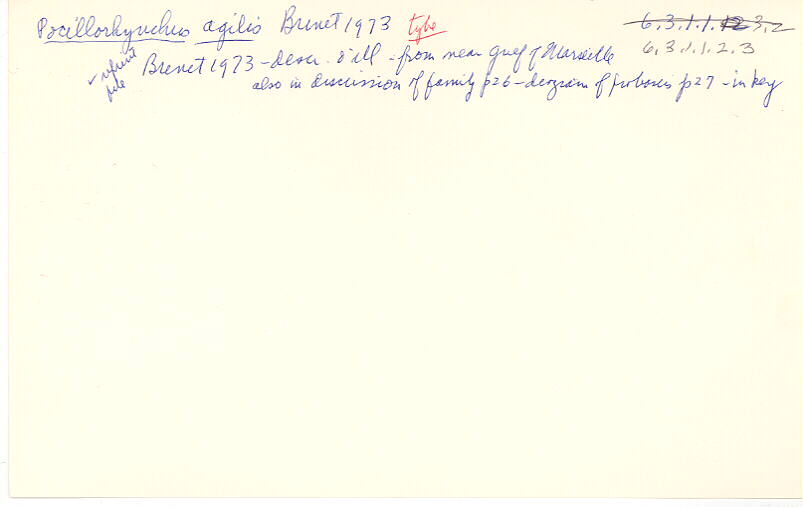 Pocillorhynchus agilis Brunet 1973 type 6.3.1.1.12 3.2
6.3.1.1.2.3
✓ reprint file Brunet 1973 - descr. & ill - from near gulf of Marseille
also in discussion of family p26 - diagram of proboscis p27 - in key